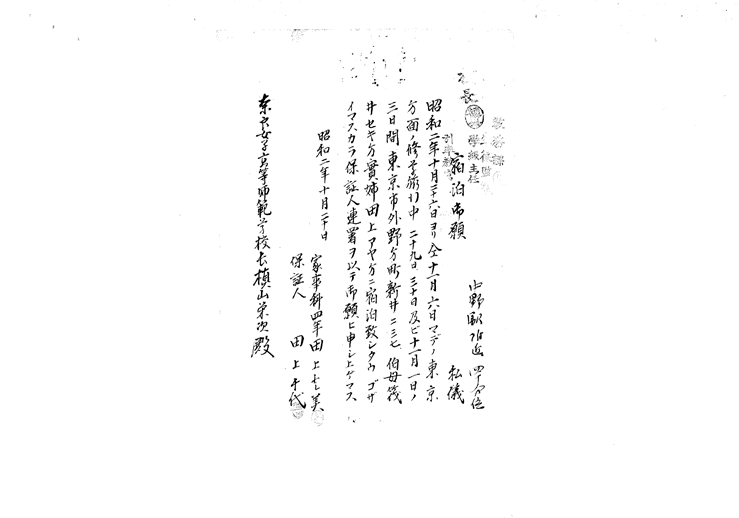 宿泊御願
私儀
昭和二年十月二十六日ヨリ仝十一月六日マデノ東京
方面ノ修学旅行中 二十九日、三十日及ビ十一月一日ノ
三日間 東京市外野方町新井二三七 伯母筏
井セキ方實姉田上アヤ方ニ宿泊致シタウゴザ
イマスカラ保証人連署ヲ以テ御願ヒ申シ上ゲマス
昭和二年十月二十日
家事科四年 田上
保証人 田上千代
奈良女子高等師範学校長槇山栄次殿
学級主任